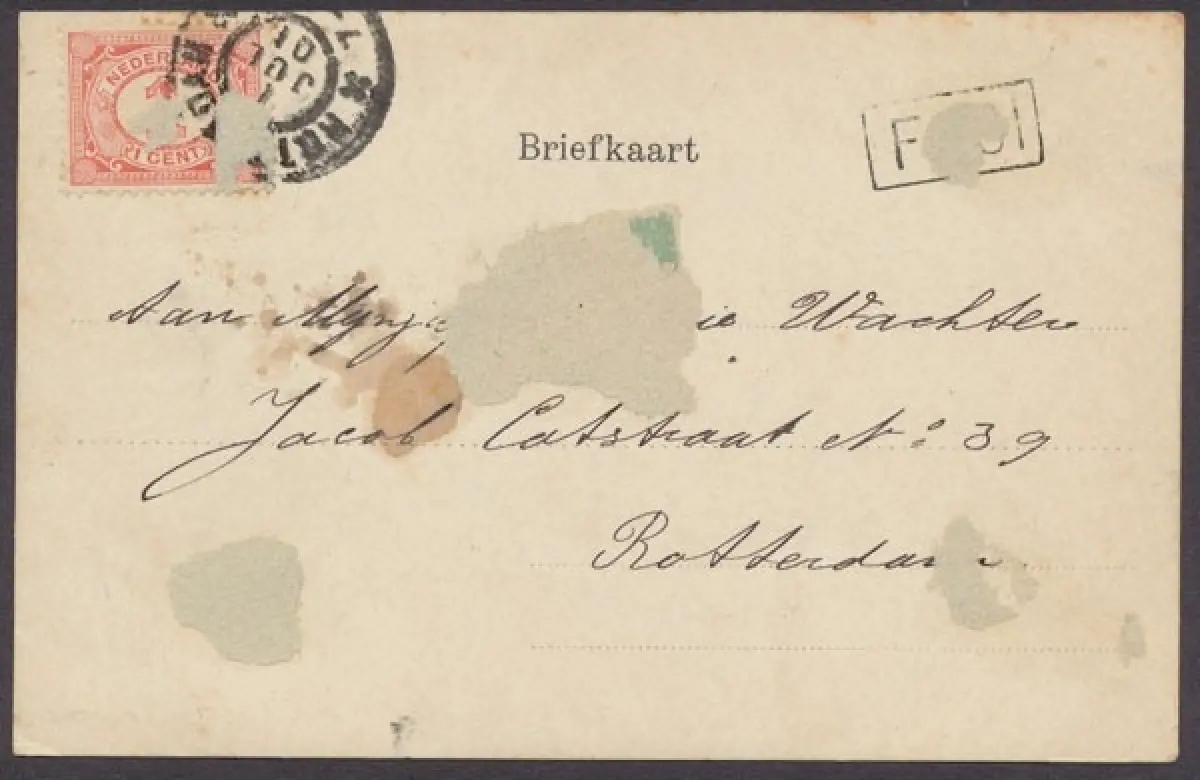 NEDERL
1 CENT
10
JUL
01
Briefkaart
Aan ie Wachter
Jacob Catstraat No 39
Rotterdam